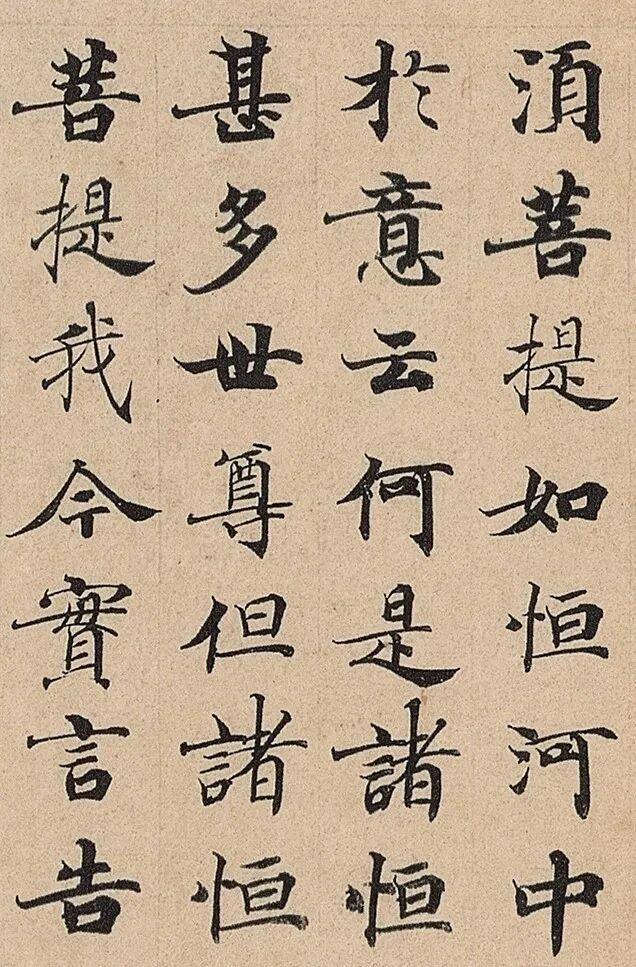 須菩提如恒河中
於意云何是諸恒
甚多世尊但諸恒
菩提我今實言告